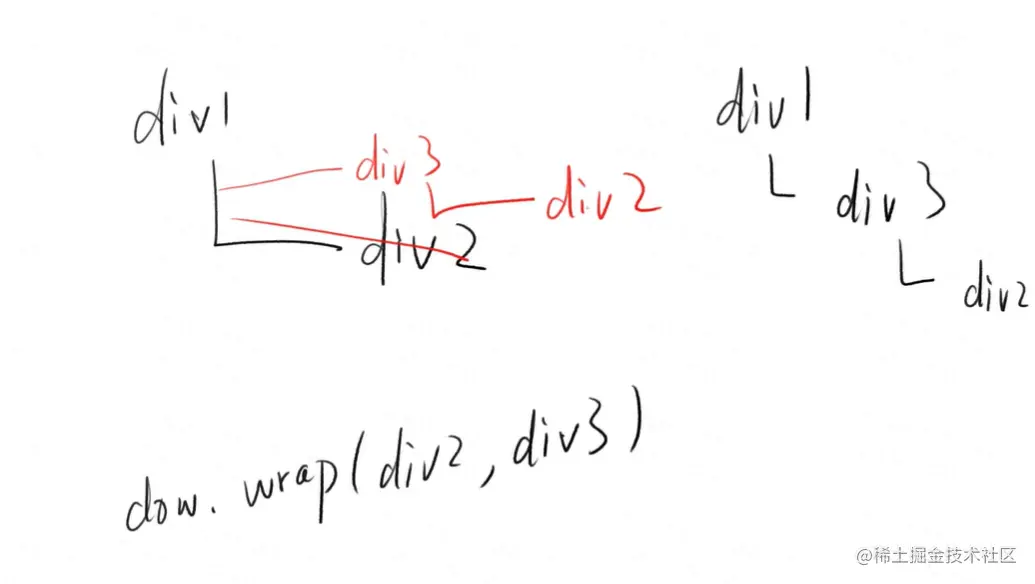 div1
div3
div2
div2
div1
div3
div2
dom.wrap(div2, div3)
@稀土掘金技术社区